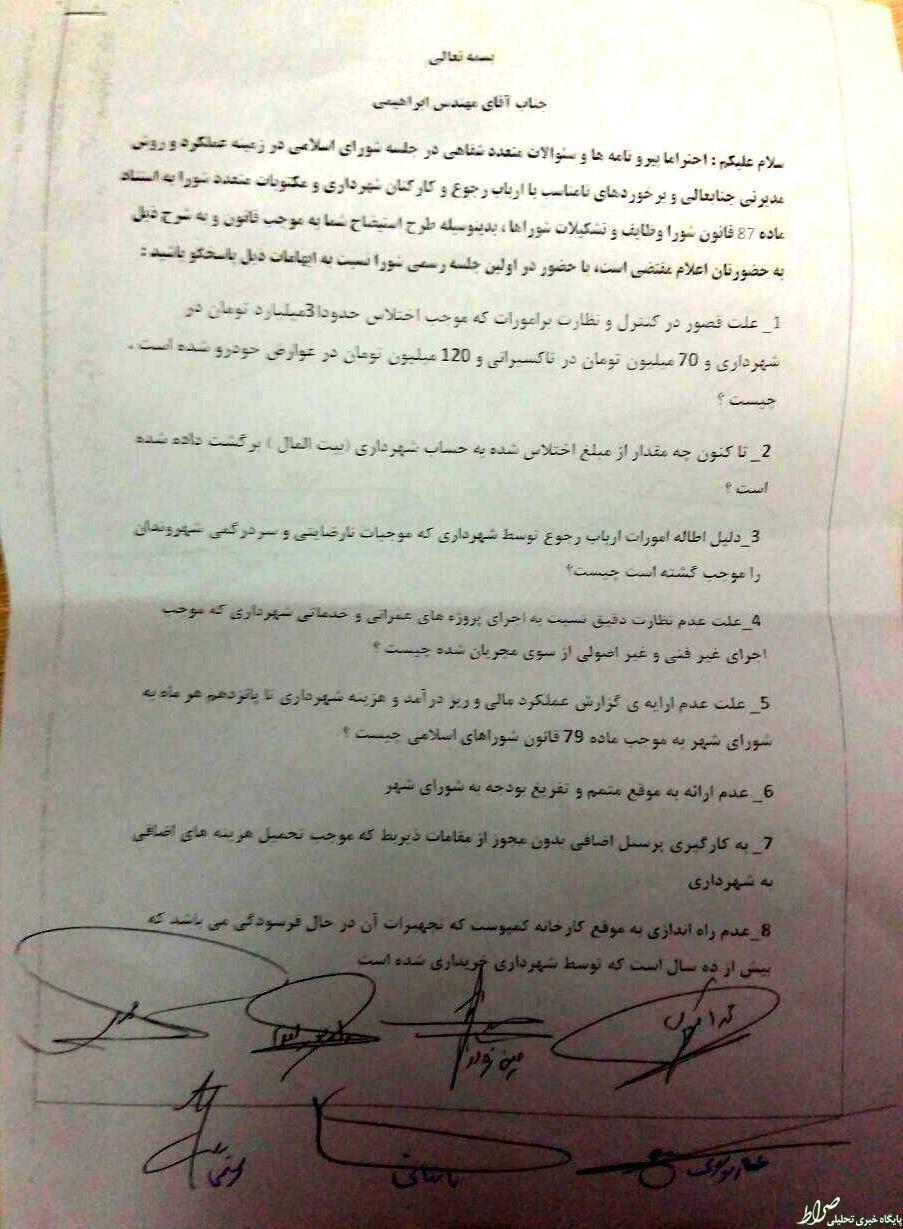 بسمه تعالی
جناب آقای مهندس ابراهیمی
سلام علیکم : احتراما پیرو نامه ها و سئوالات متعدد شفاهی در جلسه شورای اسلامی در زمینه عملکرد و روش
مدیرتی جنابعالی و برخوردهای نامناسب با ارباب رجوع و کارکنان شهرداری و مکتوبات متعدد شورا به استناد
ماده 87 قانون شورا وظایف و تشکیلات شوراها ، بدینوسیله طرح استیضاح شما به موجب قانون و به شرح ذیل
به حضورتان اعلام مقتضی است، با حضور در اولین جلسه رسمی شورا نسبت به ابهامات ذیل پاسخگو باشید :
1_ علت قصور در کنترل و نظارت برامورات که موجب اختلاس حدودا3میلیارد تومان در
شهرداری و 70 میلیون تومان در تاکسیرانی و 120 میلیون تومان در عوارض خودرو شده است .
چیست ؟
2_ تا کنون چه مقدار از مبلغ اختلاس شده به حساب شهرداری (بیت المال ) برگشت داده شده
است ؟
3_دلیل اطاله امورات ارباب رجوع توسط شهرداری که موجبات نارضایتی و سردرگمی شهروندان
را موجب گشته است چیست؟
4_علت عدم نظارت دقیق نسبت به اجرای پروژه های عمرانی و خدماتی شهرداری که موجب
اجرای غیر فنی و غیر اصولی از سوی مجریان شده چیست ؟
5_ علت عدم ارایه ی گزارش عملکرد مالی و ریز درآمد و هزینه شهرداری تا پانزدهم هر ماه به
شورای شهر به موجب ماده 79 قانون شوراهای اسلامی چیست ؟
6_ عدم ارائه به موقع متمم و تفریغ بودجه به شورای شهر
7_ به کارگیری پرسنل اضافی بدون مجوز از مقامات ذیربط که موجب تحمیل هزینه های اضافی
به شهرداری
8_عدم راه اندازی به موقع کارخانه کمپوست که تجهیزات آن در حال فرسودگی می باشد که
بیش از ده سال است که توسط شهرداری خریداری شده است
صراط
پایگاه خبری تحلیلی